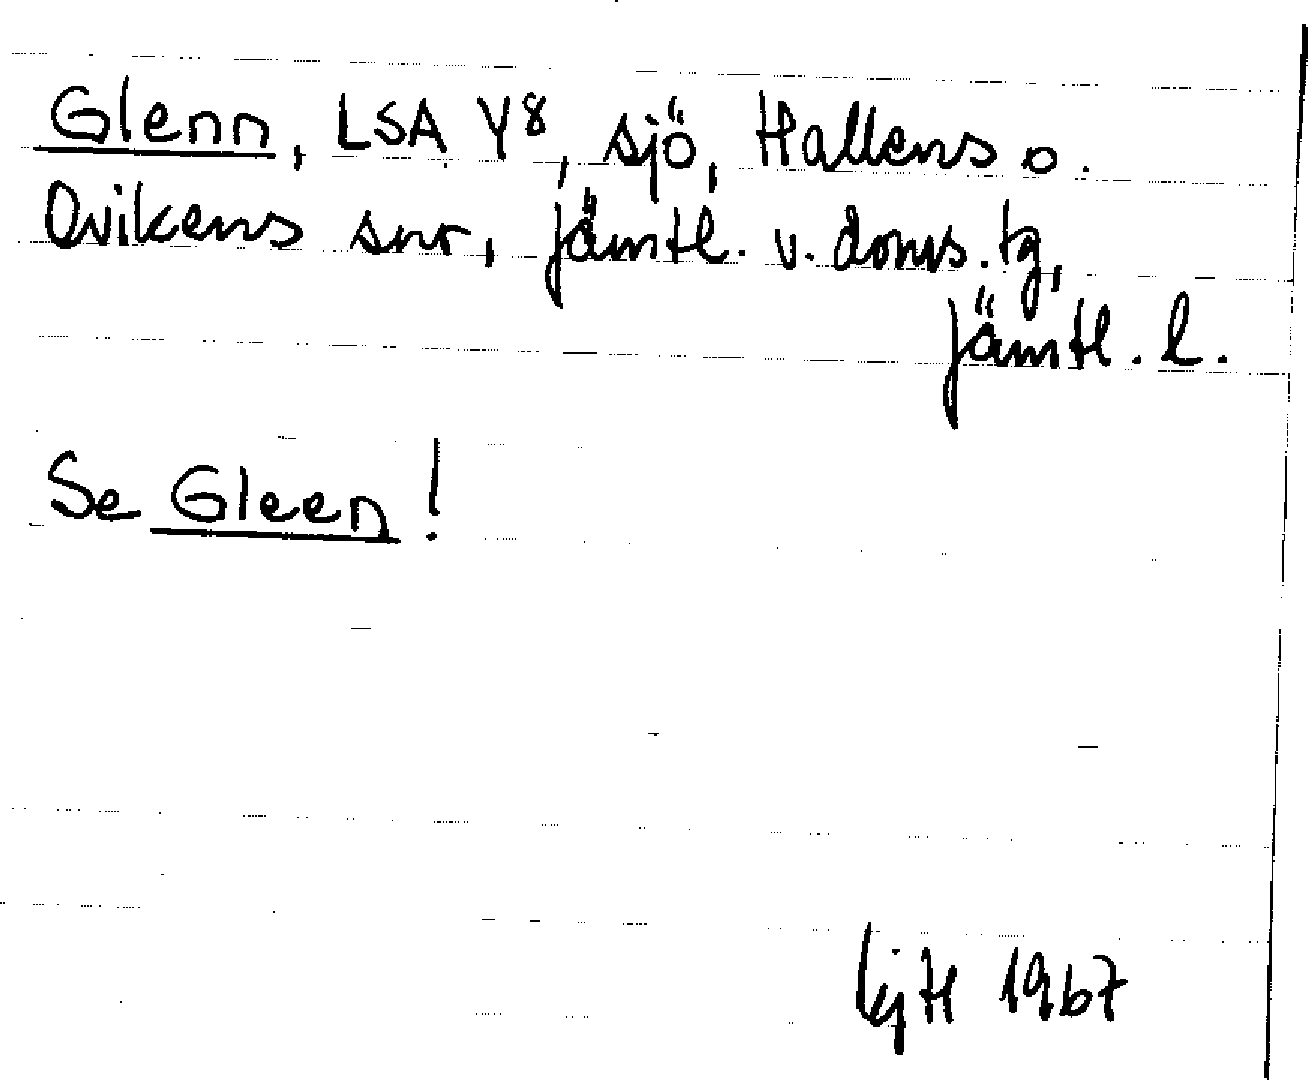 Glenn, LSA Y8, sjö, Hallens o.
Ovikens snr, Jämtl. v. doms. tg,
Jämtl. l.
Se Gleen!
1967